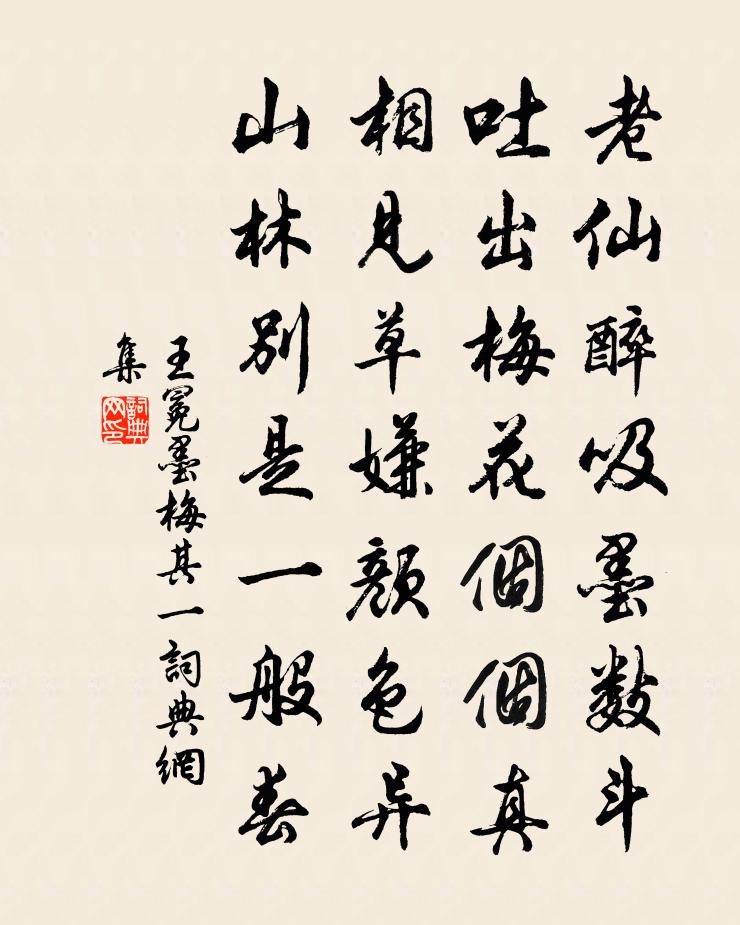 老仙醉吸墨數斗
吐出梅花個個真
相見草嫌顏色异
山林別是一般春
王冕墨梅其一詞典網
集
詞典
网印